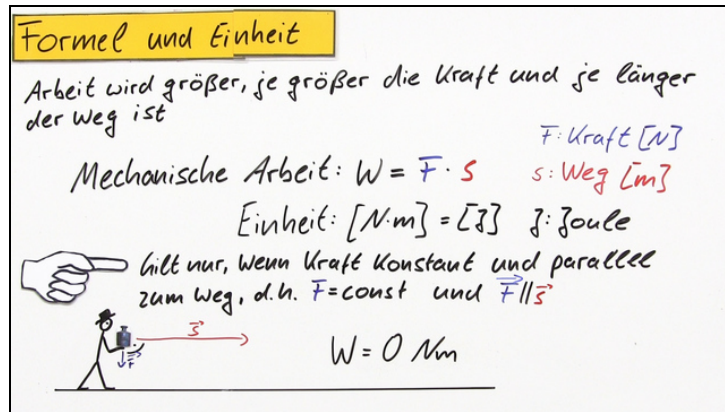 Formel und Einheit
Arbeit wird größer, je größer die Kraft und je länger
der Weg ist
F: Kraft [N]
Mechanische Arbeit: W = F · s
s: Weg [m]
Einheit: [N·m] = [J] J: Joule
Gilt nur, wenn Kraft konstant und parallel
zum Weg, d.h. F=const und F⃗ || s⃗
s⃗
F⃗
W = 0 Nm